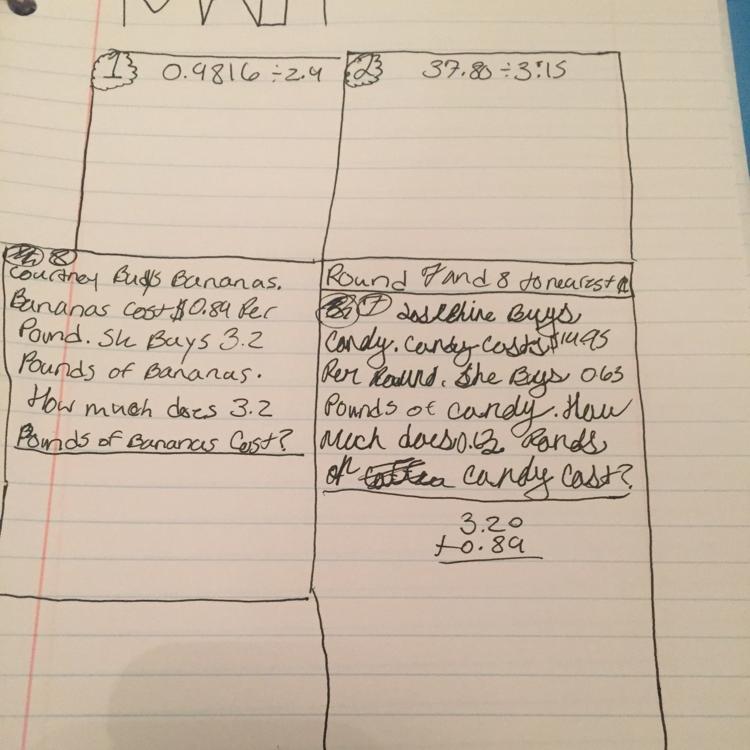 MATH
1 0.9816 ÷ 2.4
2 37.80 ÷ 3.15
8
Courtney Buys Bananas.
Bananas Cost $0.89 Per
Pound. She Buys 3.2
Pounds of Bananas.
How much does 3.2
Pounds of Bananas Cost?
Round 7 and 8 to nearest
7 Josephine Buys
Candy. Candy Costs $14.95
Per Pound. She Buys 0.63
Pounds of candy. How
Much does Pounds
of candy Cost?
3.20
+0.89